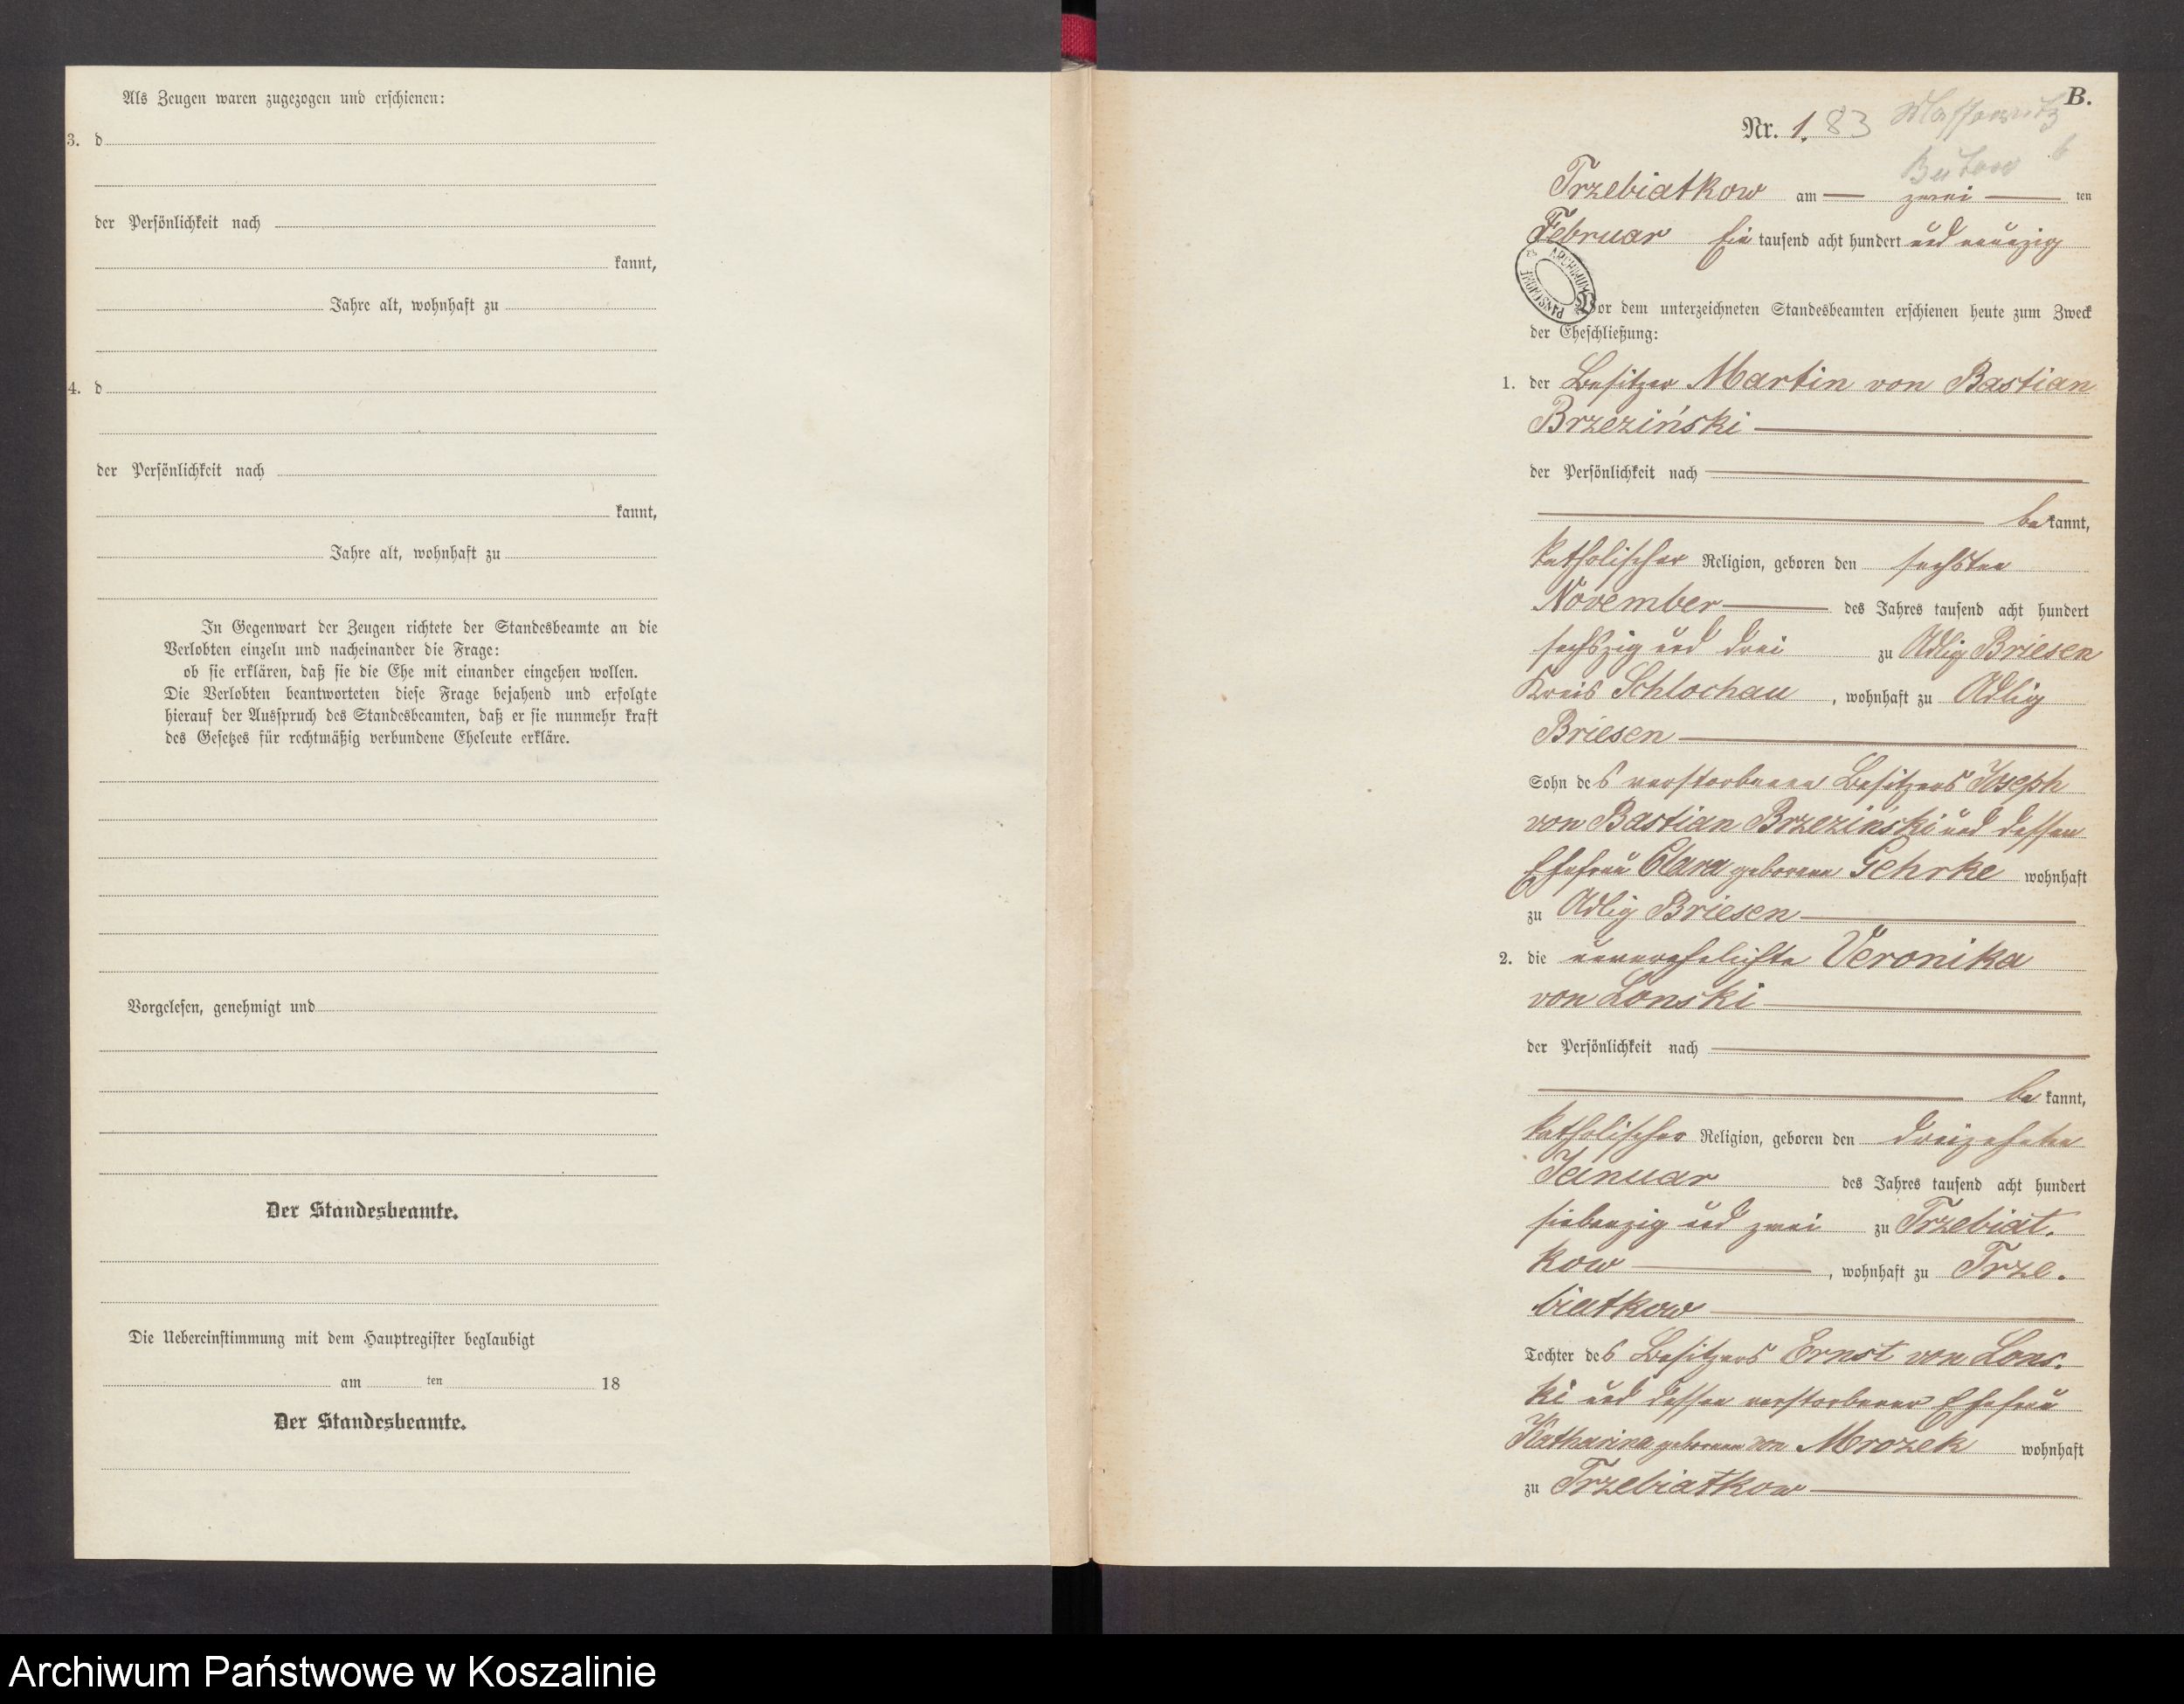 Als Zeugen waren zugezogen und erschienen:
3. d
der Persönlichkeit nach
kannt,
Jahre alt, wohnhaft zu
4. d
der Persönlichkeit nach
kannt,
Jahre alt, wohnhaft zu
In Gegenwart der Zeugen richtete der Standesbeamte an die
Verlobten einzeln und nacheinander die Frage:
ob sie erklären, daß sie die Ehe mit einander eingehen wollen.
Die Verlobten beantworteten diese Frage bejahend und erfolgte
hierauf der Ausspruch des Standesbeamten, daß er sie nunmehr kraft
des Gesetzes für rechtmäßig verbundene Eheleute erkläre.
Vorgelesen, genehmigt und
Der Standesbeamte.
Die Uebereinstimmung mit dem Hauptregister beglaubigt
am ten 18
Der Standesbeamte.
B.
Nr. 1. 83
Bütow 6
Trzebiatkow am zwei ten
Februar Ein tausend acht hundert und neunzig
ARCHIWUM PAŃSTWOWE
Vor dem unterzeichneten Standesbeamten erschienen heute zum Zweck
der Eheschließung:
1. der Besitzer Martin von Bastian
Brzeziński
der Persönlichkeit nach
be kannt,
katholischer Religion, geboren den sechsten
November des Jahres tausend acht hundert
sechszig und drei zu Adlig Briesen
Kreis Schlochau, wohnhaft zu Adlig
Briesen
Sohn des verstorbenen Besitzers Joseph
von Bastian Brzeziński und dessen
Ehefrau Clara geborene Gehrke wohnhaft
zu Adlig Briesen
2. die unverehelichte Veronika
von Lonski
der Persönlichkeit nach
be kannt,
katholischer Religion, geboren den dreizehnten
Januar des Jahres tausend acht hundert
siebenzig und zwei zu Trzebiat.
kow, wohnhaft zu Trze.
biatkow
Tochter des Besitzers Ernst von Lons.
ki und dessen verstorbener Ehefrau
Katharina geborenen von Mrozek wohnhaft
zu Trzebiatkow
Archiwum Państwowe w Koszalinie